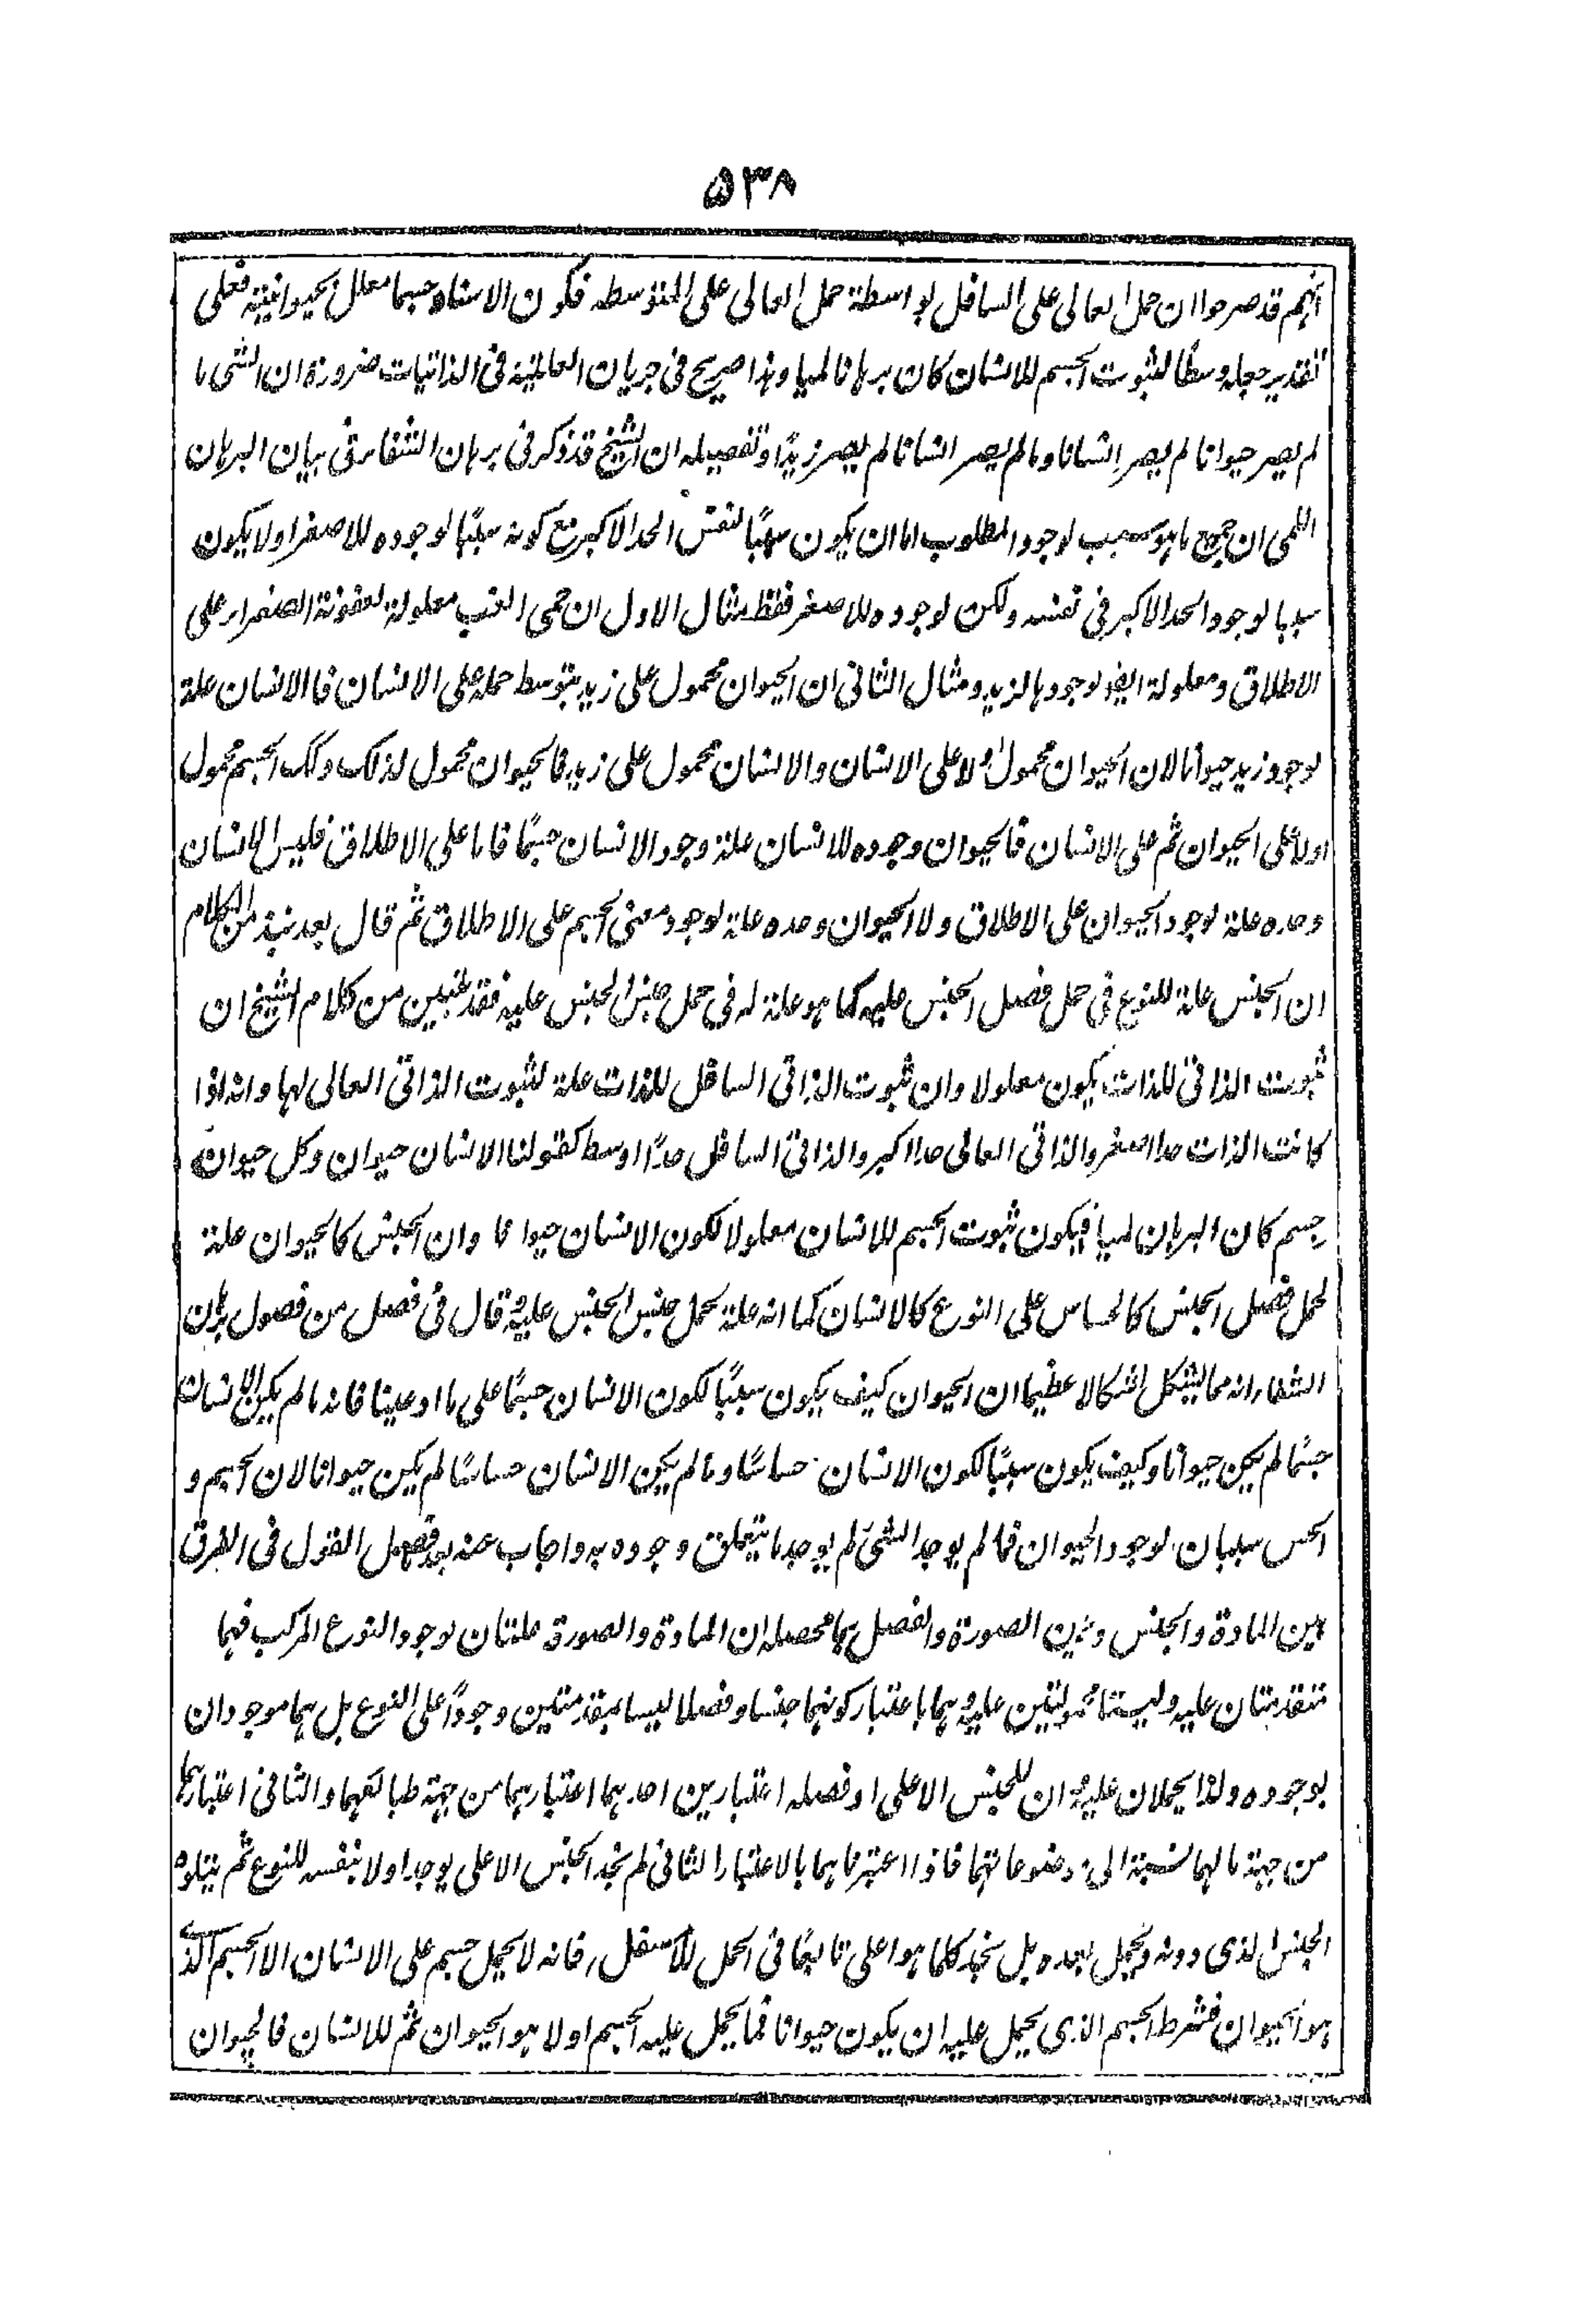 ۵۳۸
انهم قد صرحوا ان حمل العالى على السافل بواسطة حمل العالى على المتوسط فكون الانسان جسما معلل بحيوانيته فعلى
تقدير جعله وسطا لثبوت الجسم للانسان كان برهانا لميا وهذا صريح فى جريان العالمية فى الذاتيات ضرورة ان الشى ما
لم يصر حيوانا لم يصر انسانا وما لم يصر انسانا لم يصر زيدًا وتفصيله ان الشيخ قد ذكر فى برهان الشفاء فى بيان البرهان
اللمى ان جميع ما هو سبب لوجود المطلوب اما ان يكون سببًا لنفس الحد الاكبر مع كونه سببًا لوجوده للاصغر او لا يكون
سببا لوجود الحد الاكبر فى نفسه ولكن لوجوده للاصغر فقط مثال الاول ان حمى الغب معلولة لعفونة الصفراء على
الاطلاق ومعلولة ايضا لوجودها لزيد ومثال الثانى ان الحيوان محمول على زيد بتوسط حمله على الانسان فالانسان علة
لوجود زيد حيوانا لان الحيوان محمول اولا على الانسان والانسان محمول على زيد فالحيوان محمول لذلك وكك الجسم محمول
اولا على الحيوان ثم على الانسان فالحيوان وجوده للانسان علة وجود الانسان جسمًا فاما على الاطلاق فليس الانسان
وحده علة لوجود الحيوان على الاطلاق ولا الحيوان وحده علة لوجود معنى الجسم على الاطلاق ثم قال بعد نبذ من الكلام
ان الجنس علة للنوع فى حمل فصل الجنس عليه كما هو علة له في حمل جنس الجنس عليه فقد تبين من كلام الشيخ ان
ثبوت الذاتى للذات يكون معلولا وان ثبوت الذاتى السافل للذات علة لثبوت الذاتى العالى لها وانه اذا
كانت الذات حدا اصغر والذاتى العالى حدا اكبر والذاتى السافل حدًا اوسط كقولنا الانسان حيوان وكل حيوان
جسم كان البرهان لميا فيكون ثبوت الجسم للانسان معلولا لكون الانسان حيوانا وان الجنس كالحيوان علة
لحمل فصل الجنس كالحساس على النوع كالانسان كما انه علة لحمل جنس الجنس عليه وقال فى فصل من فصول برهان
الشفاء انه مما يشكل اشكالا عظيما ان الحيوان كيف يكون سببًا لكون الانسان جسمًا على ما ادعينا فانه ما لم يكن الانسان
جسمًا لم يكن حيوانا وكيف يكون سببًا لكون الانسان حساسًا وما لم يكن الانسان حساسًا لم يكن حيوانا لان الجسم و
الحس سببان لوجود الحيوان فما لم يوجد الشئ لم يوجد ما يتعلق وجوده به واجاب عنه بعد تفصيل القول فى الفرق
بين المادة والجنس وبين الصورة والفصل بما محصله ان المادة والصورة علتان لوجود النوع المركب فهما
متقدمتان عليه وليستا محمولتين عليه وهما باعتبار كونهما جنسا وفصلا ليسا بمتقدمتين وجودًا على النوع بل هما موجودان
بوجوده ولذا يحملان عليه ثم ان للجنس الاعلى او فصله اعتبارين احدهما اعتبارهما من جهة طبائعهما والثانى اعتبارهما
من جهة ما لهما نسبة الى موضوعاتهما فاذا اعتبرناهما بالاعتبار الثانى لم نجد الجنس الاعلى يوجد اولا بنفسه للنوع ثم يتلوه
الجنس الذى دونه ويحمل بعده بل نجد كلما هو اعلى تابعًا فى الحمل للاسفل فانه لا يحمل جسم على الانسان الا الجسم الذى
هو الحيوان فشرط الجسم الذى يحمل عليه ان يكون حيوانا فما يحمل عليه الجسم اولا هو الحيوان ثم للانسان فالحيوان